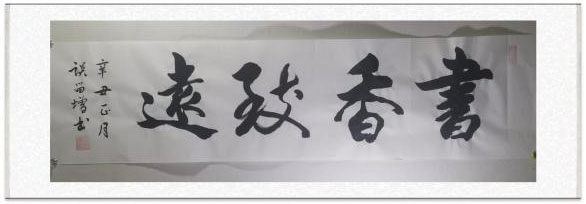 書香致遠
辛丑正月
談留增书